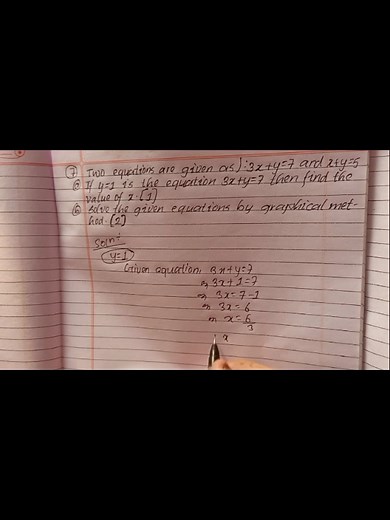 7 Two equations are given as): 3x+y=7 and x+y=5
a If y=1 is the equation 3x+y=7 then find the
value of x. [1]
b Solve the given equations by graphical met-
hod. [2]
Soln:
y=1
Given equation, 3x+y=7
⇒ 3x+1=7
⇒ 3x=7-1
⇒ 3x=6
⇒ x=6/3
x